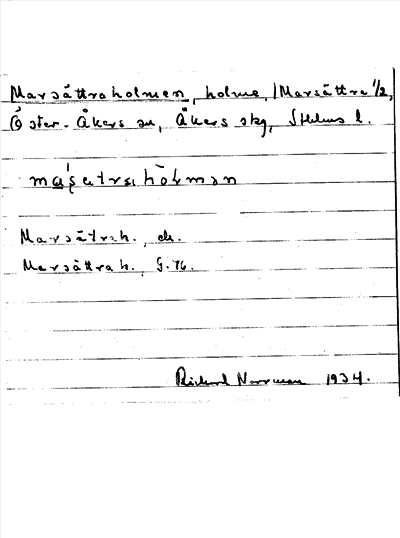 Marsättraholmen, holme, /Marsättra ½,
Öster-Åkers sn, Åkers skg, Sthlms l.
Marsätrah., ek.
Marsättrah. G.76.
Rickard Norrman 1934.